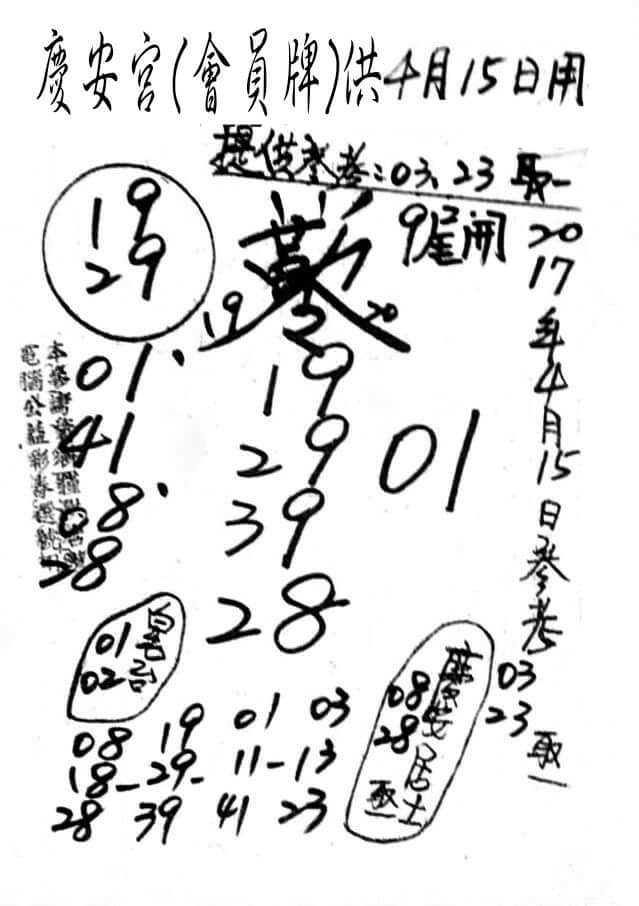 慶安宮(會員牌)供4月15日用
提供參考:03、23 取一
19
29
9尾開
19 20
2017年4月15日參考
03
23
取一
01
41
08
28
19
29
39
28
01
01
02
08 19 01 03
18-29-11-13
28 39 41 23
慶安居士
08
28
取一